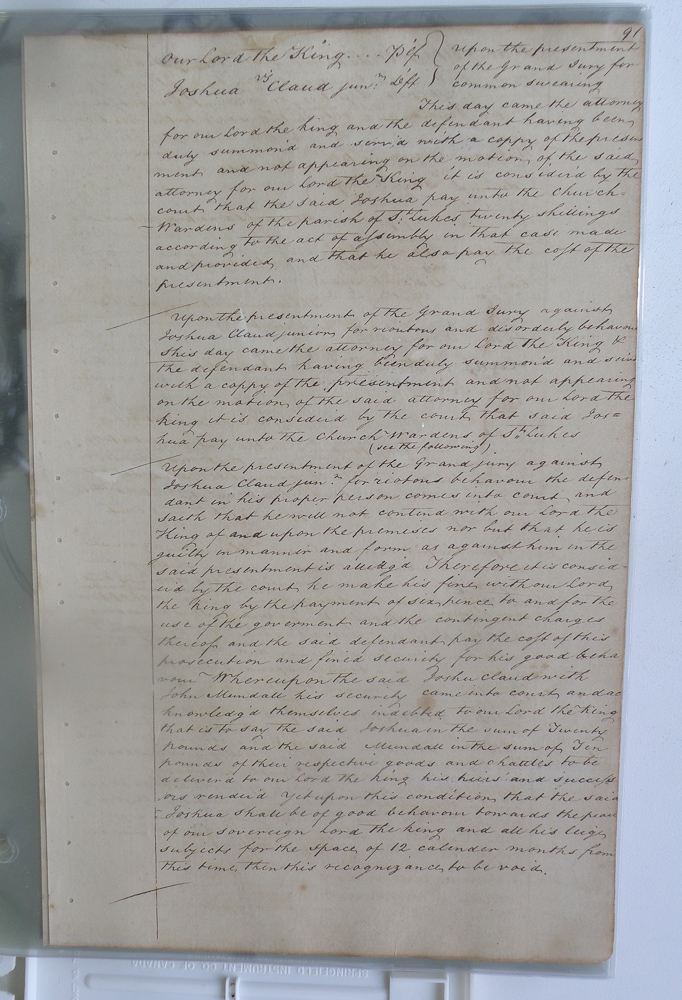 91
our Lord the King .... Plf } upon the presentment
vs } of the Grand Jury for
Joshua Claud junr. Deft } common swearing
This day came the attorney
for our Lord the king and the defendant having been
duly summon'd and serv'd with a coppy of the present
ment and not appearing on the motion of the said
attorney for our Lord the King it is considerd by the
court that the said Joshua pay unto the Church
Wardens of the parish of St. Lukes twenty shillings
according to the act of assembly in that case made
and provided, and that he also pay the cost of the
presentment.
Upon the presentment of the Grand Jury against
Joshua Claud junior for rioutous and disorderly behavour
This day came the attorney for our Lord the King &
the defendant having been duly summon'd and
with a coppy of the presentment and not appearing
on the motion of the said attorney for our Lord the
king it is considerd by the court that said Jos=
hua pay unto the Church Wardens of St. Lukes
(see the following)
Upon the presentment of the Grand jury against
Joshua Claud junr. for riotous behavour the defen-
dant in his proper person comes into court and
saith that he will not contend with our Lord the
King of and upon the premises nor but that he is
guilty in manner and form as against him in the
said presentment is alledg'd Therefore it is consid-
erd by the court he make his fine with our Lord
the King by the payment of six pence to and for the
use of the goverment and the contingent charges
thereof and the said defendant pay the cost of this
prosecution and find security for his good beha
vour Whereupon the said Joshu Claud with
John Mundall his security came into court and ac
knowledg'd themselves indebted to our Lord the King
that is to say the said Joshua in the sum of Twenty
pounds and the said Mundall in the sum of Ten
pounds of their respective goods and chattles to be
deliverd to our Lord the king his heirs and success
ors renderd Yet upon this condition that the said
Joshua shall be of good behavour towards the peace
of our sovereign Lord the king and all his leige
subjects for the space of 12 calinder months from
this time then this recognizance to be void.
SPRINGFIELD INSTRUMENT CO OF CANADA